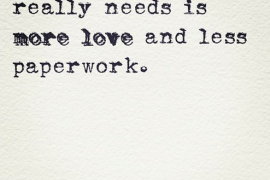 really needs is
more love and less
paperwork.